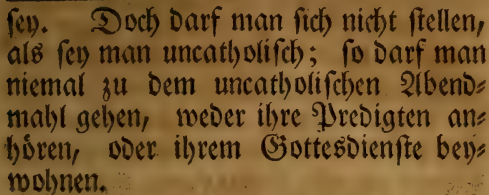 sey. Doch darf man sich nicht stellen,
als sey man uncatholisch; so darf man
niemal zu dem uncatholischen Abend=
mahl gehen, weder ihre Predigten an=
hören, oder ihrem Gottesdienste bey=
wohnen.